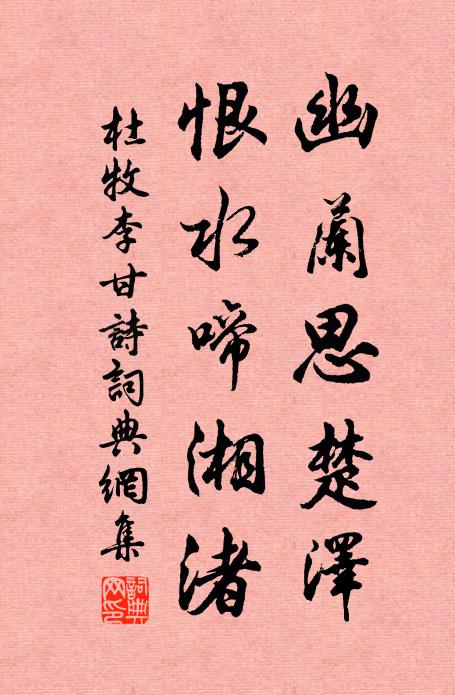 幽蘭思楚澤
恨水啼湘渚
杜牧李甘詩詞典網集
詞典網印